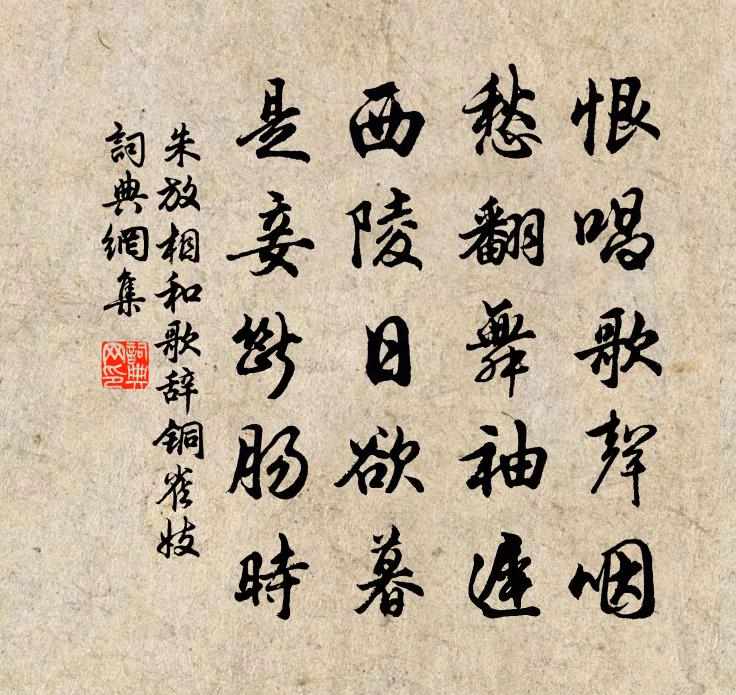 恨唱歌聲咽
愁翻舞袖遲
西陵日欲暮
是妾斷腸時
朱放相和歌辞铜雀妓
詞典網集
詞典网印